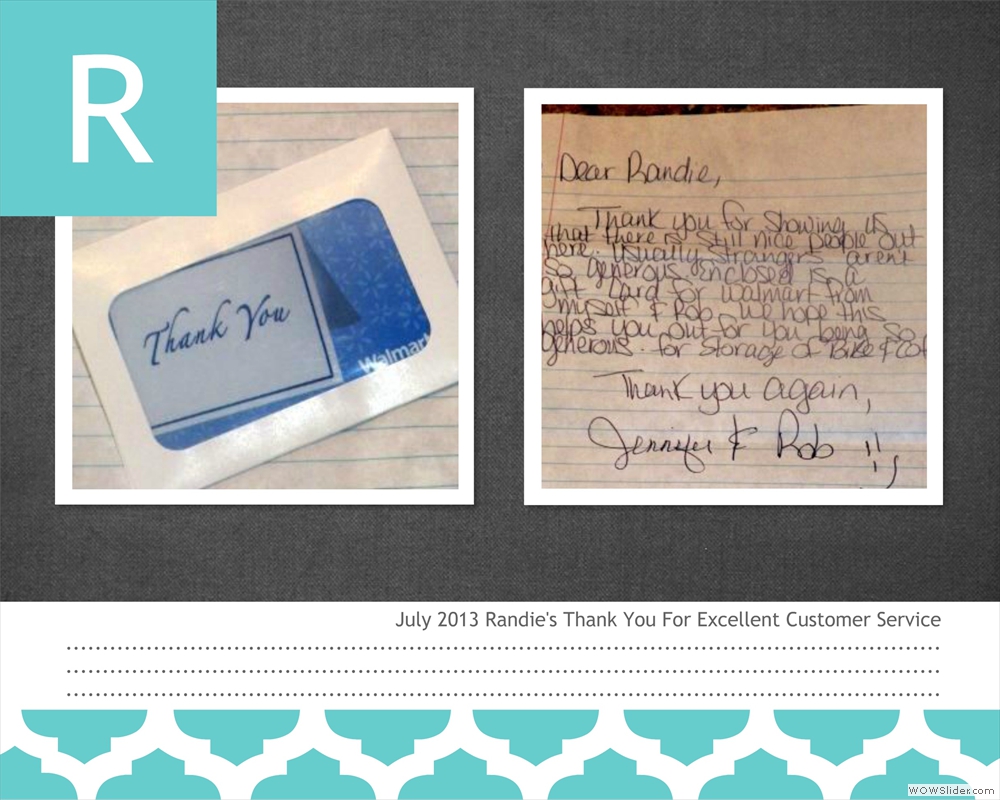 R
Thank You
Walmar
Dear Randie,
Thank you for showing us
that there is still nice people out
here. Usually strangers arent
so generous. Enclosed is a
gift card for Walmart from
myself & Rob. We hope this
helps you out for you being so
generous. for storage of Bike & cot
Thank you again,
Jennifer & Rob
July 2013 Randie's Thank You For Excellent Customer Service
WOWSlider.com